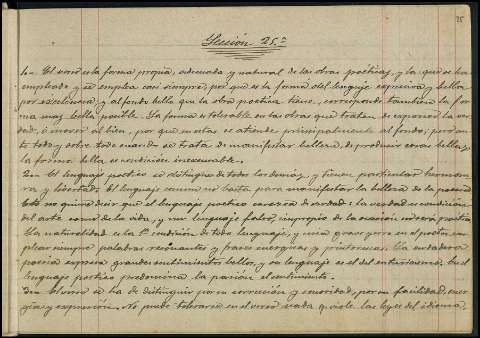 25
Sección 25.ª
1.- El verso es la forma propia, adecuada y natural de las obras poéticas, y la que se ha
empleado y se emplea casi siempre, por que es la forma del lenguaje expresiva y bella
por excelencia, y al fondo bello que la obra poética tiene, corresponde tambien la for
ma mas bella posible. La forma es tolerable en las obras que tratan de exponer la ver
dad, ó mover al bien, por que en estas se atiende principalmente al fondo; pero an
te todo y sobre todo cuando se trata de manifestar belleza, de producir cosas bellas,
la forma bella es condicion inexcusable.
2.- El lenguaje poetico se distingue de todos los demás, y tiene particular hermosu
ra y libertad. El lenguaje comun no basta para manifestar la belleza de la poesia.
Esto no quiere decir que el lenguaje poetico carezca de verdad: la verdad es condicion
del arte como de la vida, y un lenguaje falso, impropio de la ocasion no será poético.
La naturalidad es la 1ª condicion de todo lenguaje, y seria grave yerro en el poeta em
plear siempre palabras resonantes y frases energicas y pintorescas. La verdadera
poesia expresa grandes sentimientos bellos, y su lenguaje es el del entusiasmo. En el
lenguaje poetico predomina la pasion, el sentimiento.
3.- El verso se ha de distinguir por su correccion y sonoridad, por su facilidad, ener
gia y expresion. No puede tolerarse en el verso nada que viole las leyes del idioma,